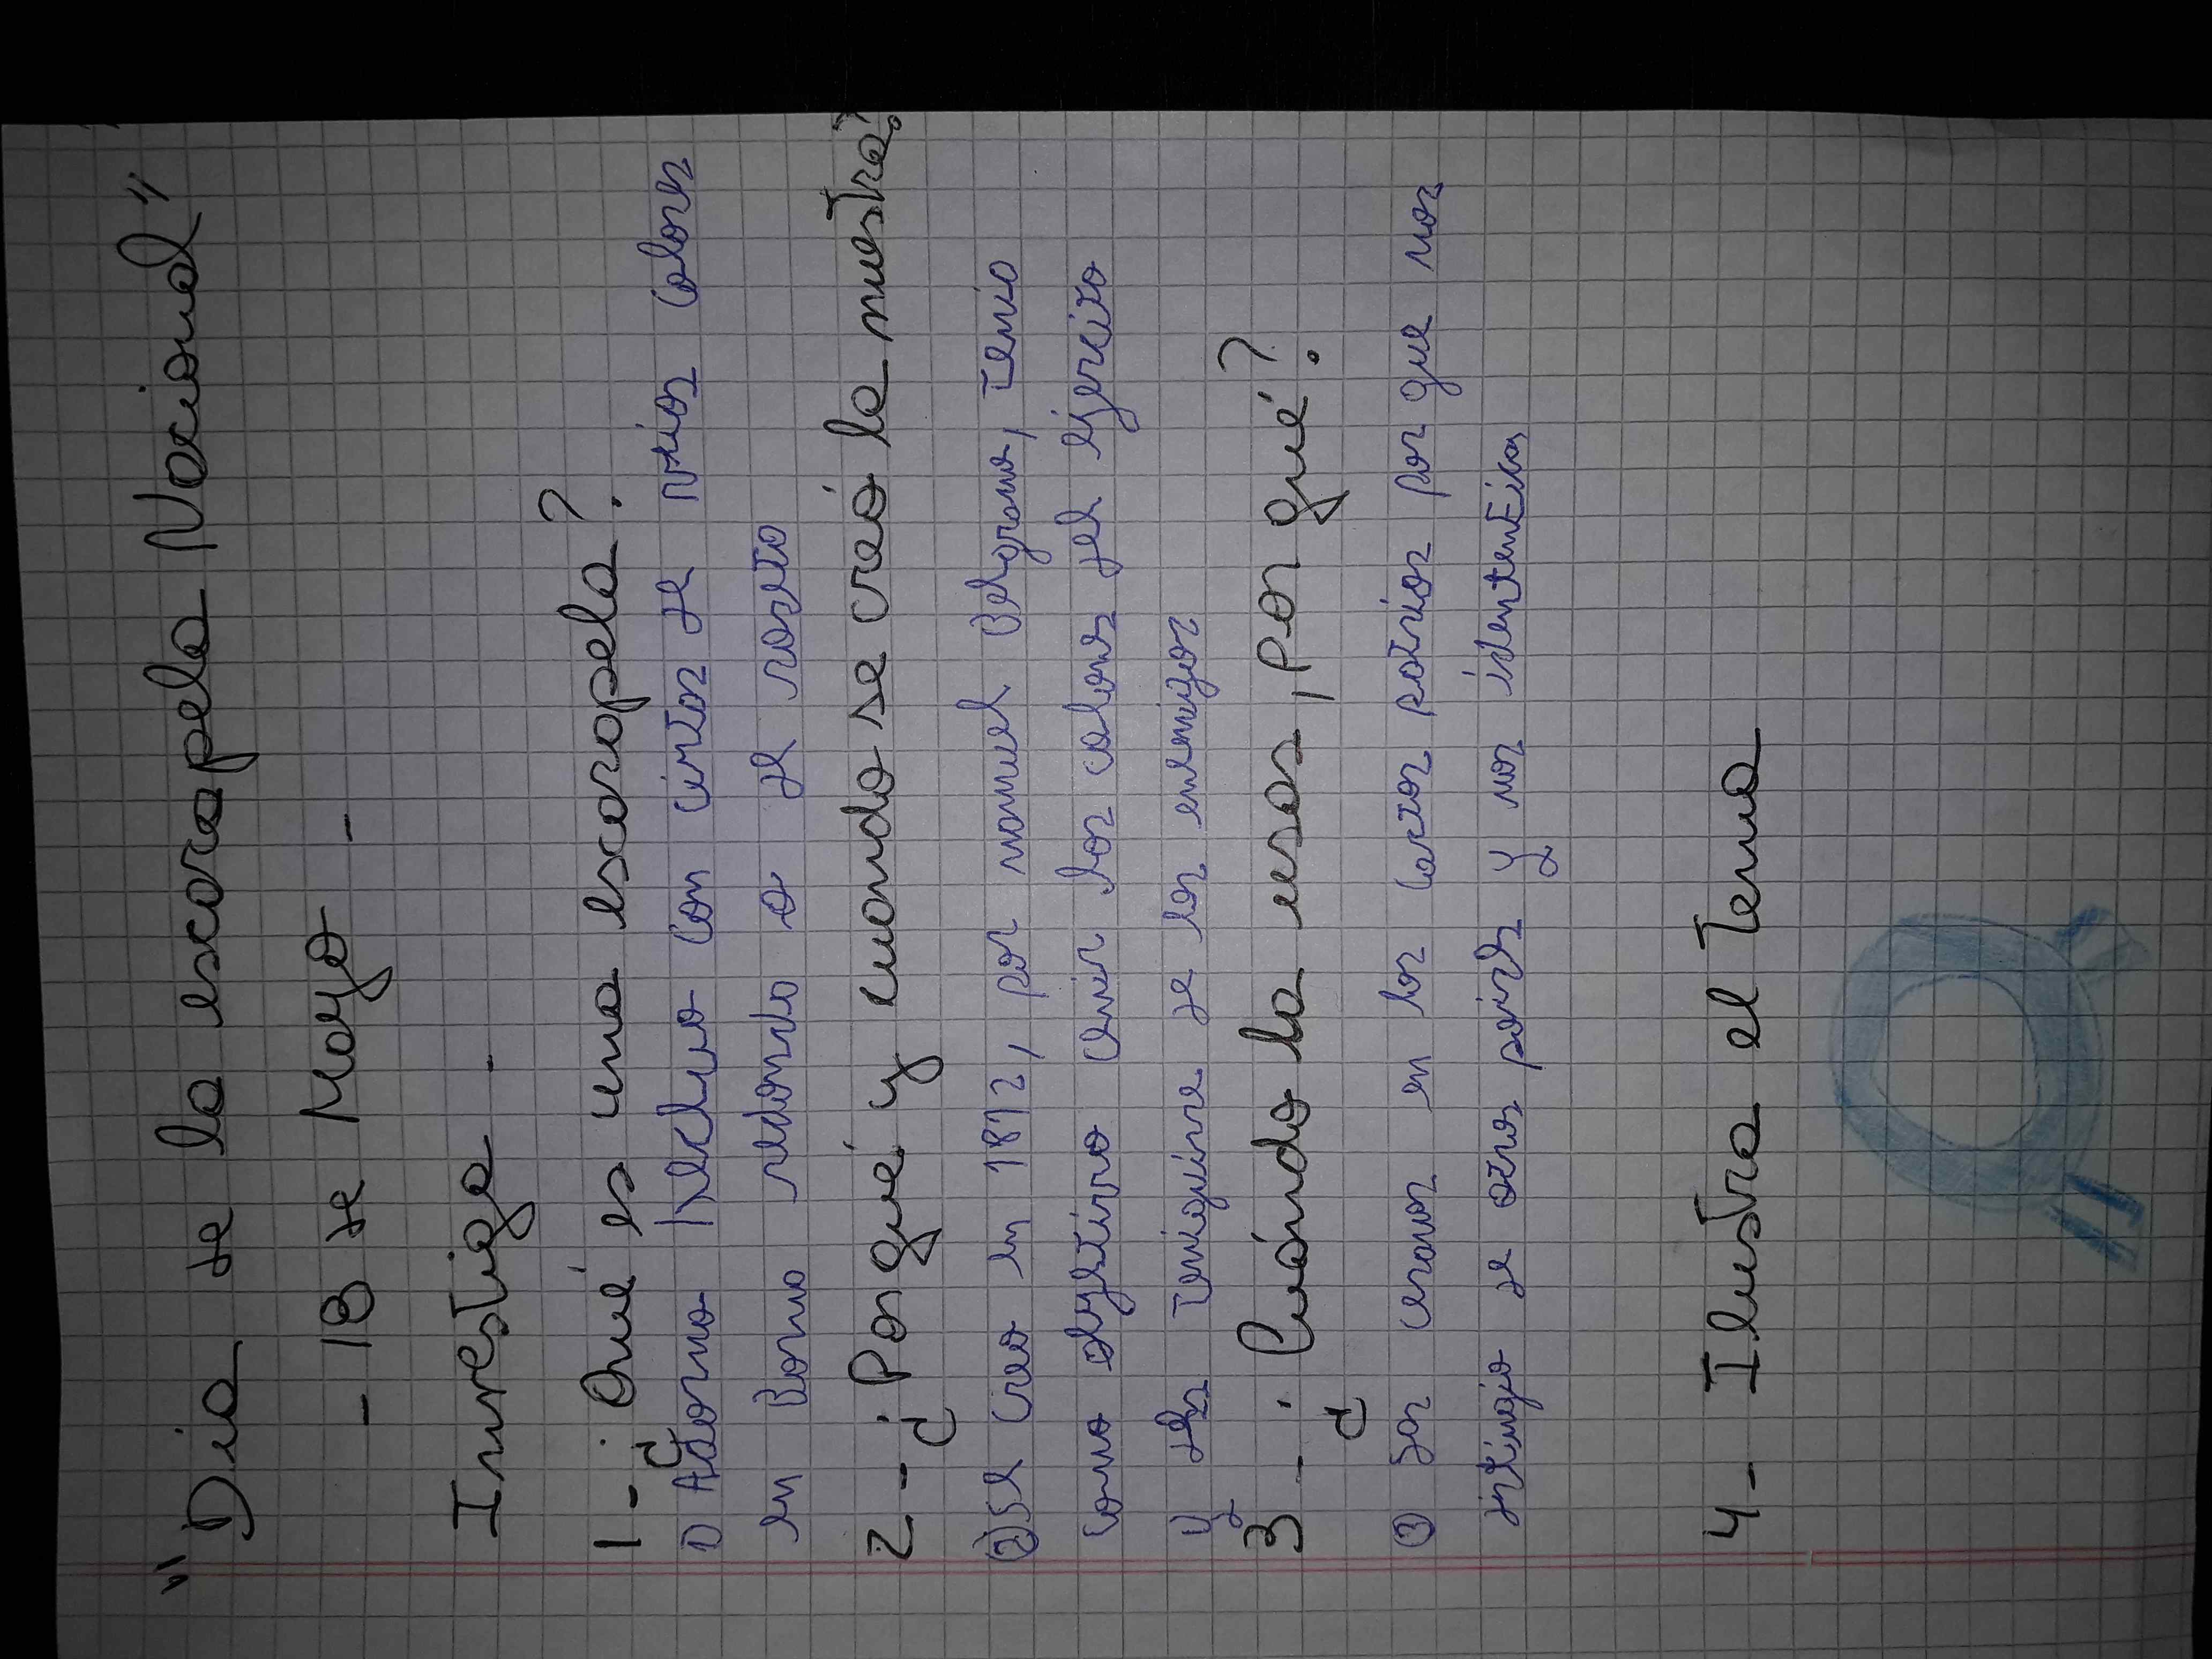 "Dia de la escarapela Nacional"
- 18 de Mayo -
Investiga.
1- ¿Qué es una escarapela?
1) Adorno hecho con cintas de varios colores
en forma redonda o de roseta
2- ¿Por qué y cuando se creó la nuestra?
② se creo en 1812, por manuel Belgrano, tenia
como objetivo unir los colores del ejercito
y distinguirse de los enemigos
3 - ¿Cuándo la usas, por qué?
③ las usamos en los actos patrios por que nos
de otros y nos
4- Ilustra el tema